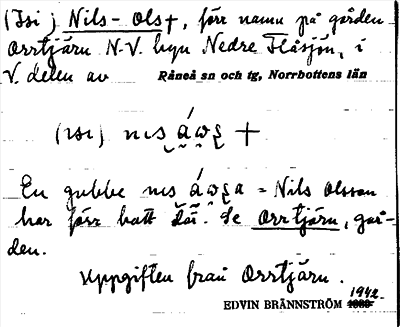 (Isi) Nils-Ols +, förr namn på gården
Orrtjärn N.V. byn Nedre Flåsjön, i
V. delen av Råneå sn och tg, Norrbottens län
(ısı) nıs +
En gubbe nıs = Nils Olsson
har förr bott där. Se Orrtjärn, går-
den.
Uppgiften från Orrtjärn.
1942
EDVIN BRÄNNSTRÖM